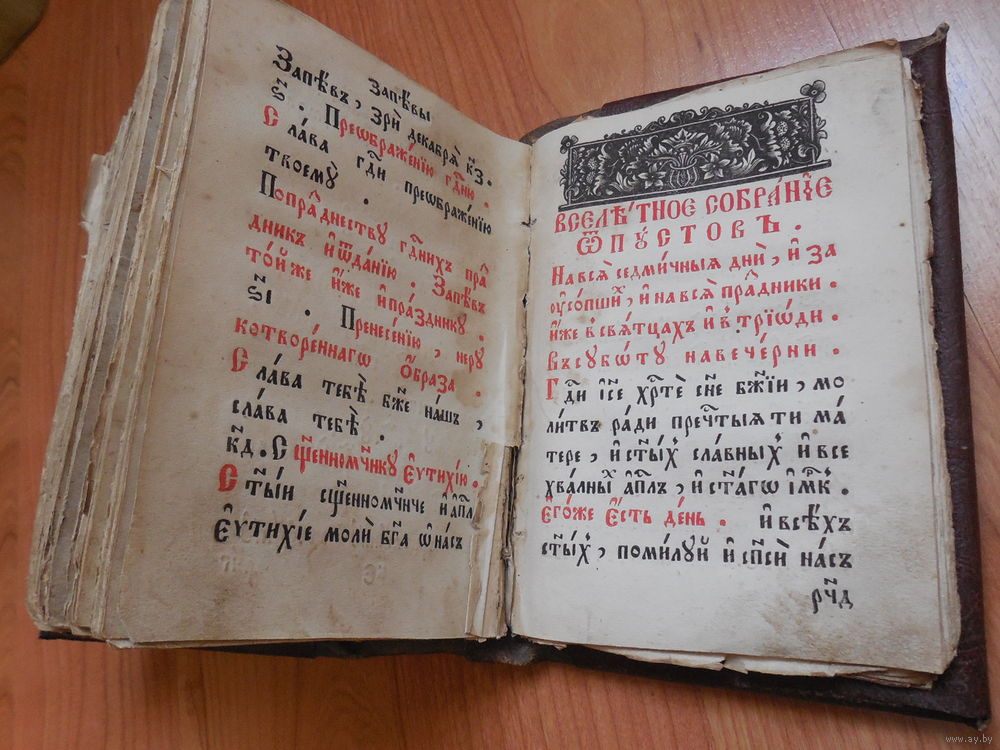 Запѣвы
Запѣвъ, зрѝ декабрѧ̀ к҃з.
ѕ҃ . Преѡбраже́нїю гдⷭ҇ню .
Сла́ва гдⷭ҇и преѡбраже́нїю
твоемꙋ̀ .
Попра́зднеству гдⷭ҇нихъ пра́
дникъ и҆ ѿда́нїю . Запѣвъ
то́йже и҆́же и҆ пра́здникꙋ
ѕ҃і . Пренесе́нїю, нерꙋ
котворе́ннагѡ ѻ҆́браза .
Сла́ва тебѣ̀ бж҃е на́шъ ,
сла́ва тебѣ̀ .
к҃д. Сщ҃енномч҃нкꙋ Є҆ѵтихі́ю .
Ст҃ы́й сщ҃енномч҃нче и҆ а҆пⷭ҇л
Є҆ѵтихі́е молѝ бг҃а ѡ҆ на́съ
ВСЕЛѢ́ТНОЕ СОБРА́НЇЕ
ѾПꙊСТОВЪ .
На всѧ̀ седми́чныѧ днѝ, и҆ за
ᲂу҆со́пшиⷯ, и҆ на всѧ̀ пра́дники .
и҆́же в̾ свѧ́тцахъ и҆ в̾ трїѡ́ди .
Въ сꙋбѡ́тꙋ на вече́рни .
Гдⷭ҇и і҆с҃е хрⷭ҇тѐ сн҃е бж҃їи, мо
ли́твъ ра́ди пречⷭ҇тыѧ ти ма́
тере, и҆ ст҃ы́хъ сла́вныхъ и҆ все
хва́лныⷯ а҆пⷭ҇лъ, и҆ ст҃а́гѡ і҆м҃к .
Є҆го́же є҆́сть де́нь . и҆ всѣ́хъ
ст҃ы́хъ, поми́лꙋй и҆ сп҃сѝ на́съ
рч҃д
www.ay.by